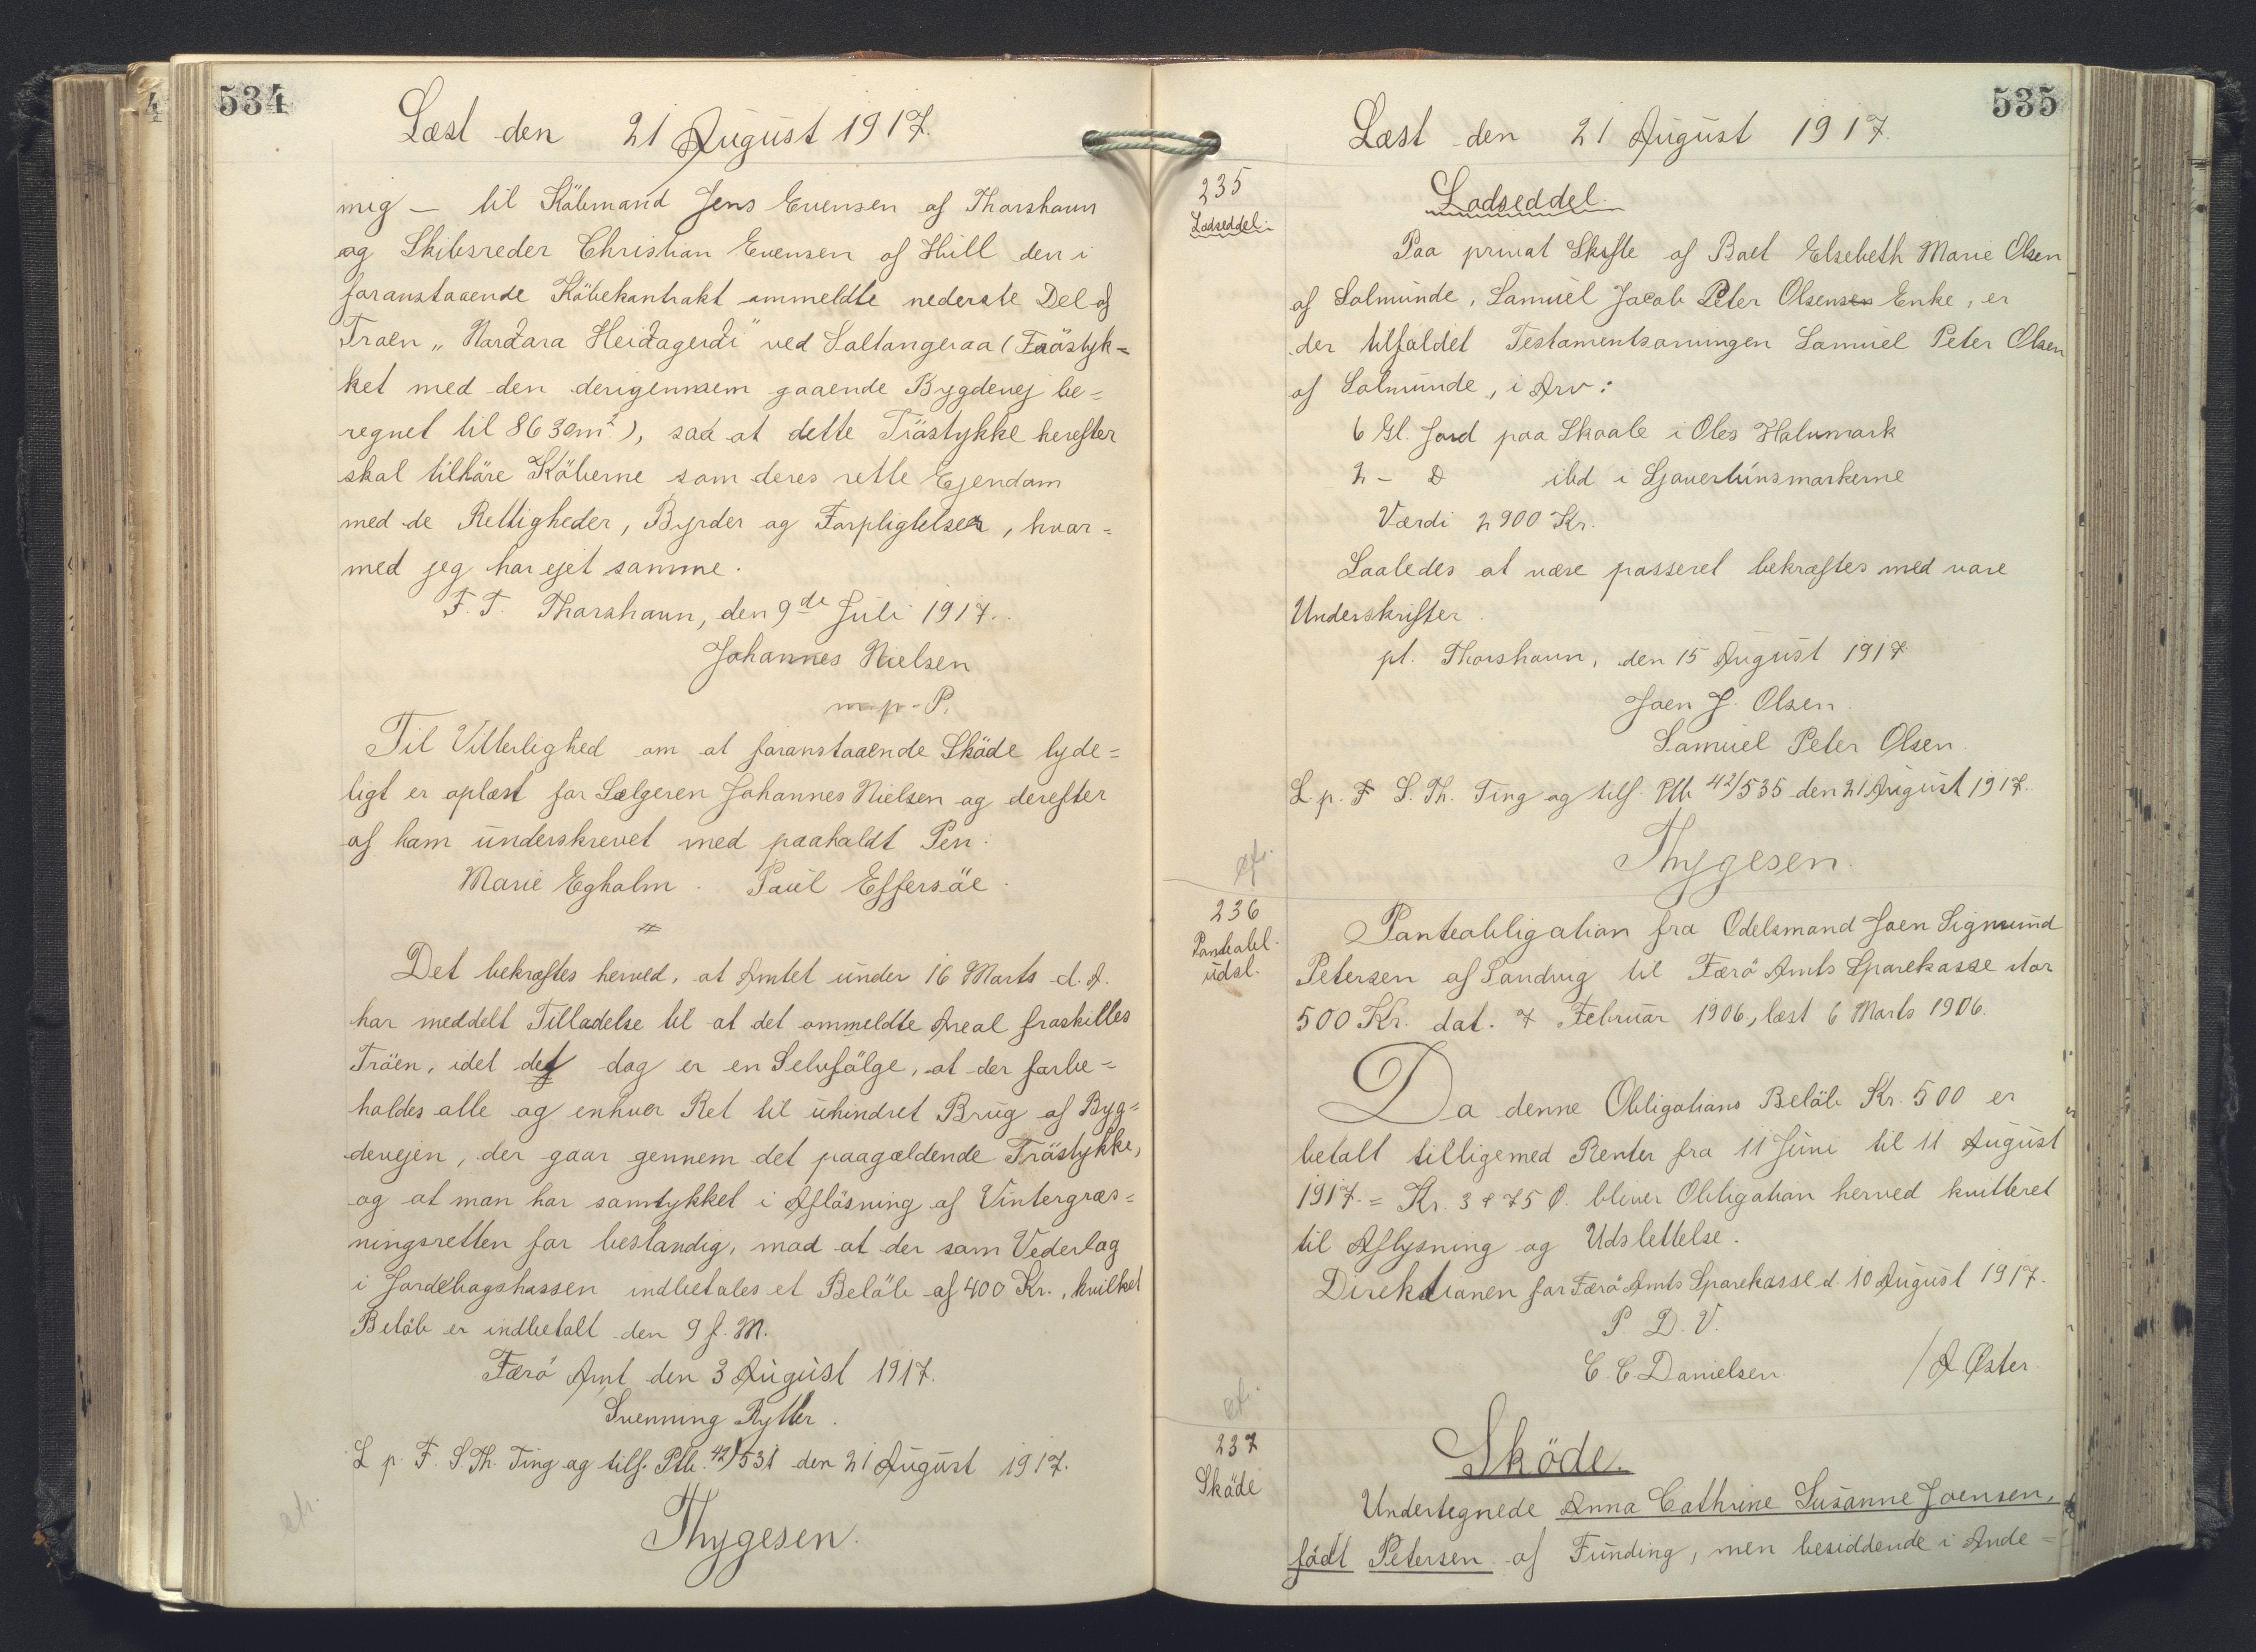 534
Læst den 21 August 1917.
mig — til Köbmand Jens Evensen af Thorshavn
og Skibsreder Christian Evensen af Hvill den i
foranstaaende Köbekontrakt ommeldte nederste Del af
Traen „Nardara Heidagerdi" ved Saltangeraa (Tröstyk=
ket med den derigennem gaaende Bygdevej be=
regnet til 8630m²), saa at dette Tröstykke herefter
skal tilhöre Köberne som deres rette Ejendom
med de Rettigheder, Byrder og Forpligtelser, hvor=
med jeg har ejet samme.
F. T. Thorshavn, den 9de Juli 1917.
Johannes Nielsen
m. p. P.
Til Vitterlighed om at foranstaaende Sköde lyde=
ligt er oplæst for Sælgeren Johannes Nielsen og derefter
af ham underskrevet med paaholdt Pen:
Marie Egholm. Paul Effersöe.
Det bekræftes herved, at Amtet under 16 Marts d. A.
har meddelt Tilladelse til at det ommeldte Areal fraskilles
Tröen, idet det dog er en Selvfölge, at der forbe=
holdes alle og enhver Ret til uhindret Brug af Byg=
devejen, der gaar gennem det paagældende Tröstykke,
og at man har samtykket i Aflösning af Vintergræs=
ningsretten for bestandig, mod at der som Vederlag
i Jordebogskassen indbetales et Belöb af 400 Kr., hvilket
Belöb er indbetalt den 9 f. M.
Færö Amt den 3 August 1917.
Svenning Rytter.
L. p. F. S. Th. Ting og tilf. Ptb. 42/531 den 21 August 1917.
Thygesen.
535
Læst den 21 August 1917.
235
Lodseddel.
Lodseddel.
Paa privat Skifte af Boet Elsebeth Marie Olsen
af Solmunde, Samuel Jacob Peter Olsensen Enke, er
der tilfaldet Testamentsarvingen Samuel Peter Olsen
af Solmunde, i Arv:
6 Gl. Jord paa Skaale i Oles Halvmark
2 – D ibd i Sjovertúnsmarkerne
Værdi 2900 Kr.
Saaledes at være passeret bekræftes med vore
Underskrifter.
pt. Thorshavn, den 15 August 1917
Joen J. Olsen.
Samuel Peter Olsen.
L. p. F S. Th. Ting og tilf. Ptb 42/535 den 21 August 1917.
Thygesen.
cfr.
236
Panteobl.
udsl.
Panteobligation fra Odelsmand Joen Sigmund
Petersen af Sandvig til Færö Amts Sparekasse stor
500 Kr. dat. 7 Februar 1906, læst 6 Marts 1906.
Da denne Obligations Belöb Kr. 500 er
betalt tilligemed Renter fra 11 Juni til 11 August
1917. = Kr. 3 & 75 Ø. bliver Obligation herved kvitteret
til Aflysning og Udslettelse.
Direktionen for Færö Amts Sparekasse d. 10 August 1917.
P. D. V.
C. C. Danielsen. / A Øster.
cfr.
237
Sköde
Sköde.
Undertegnede Anna Cathrine Susanne Joensen,
födt Petersen af Funding, men besiddende i Ande=
cfr.